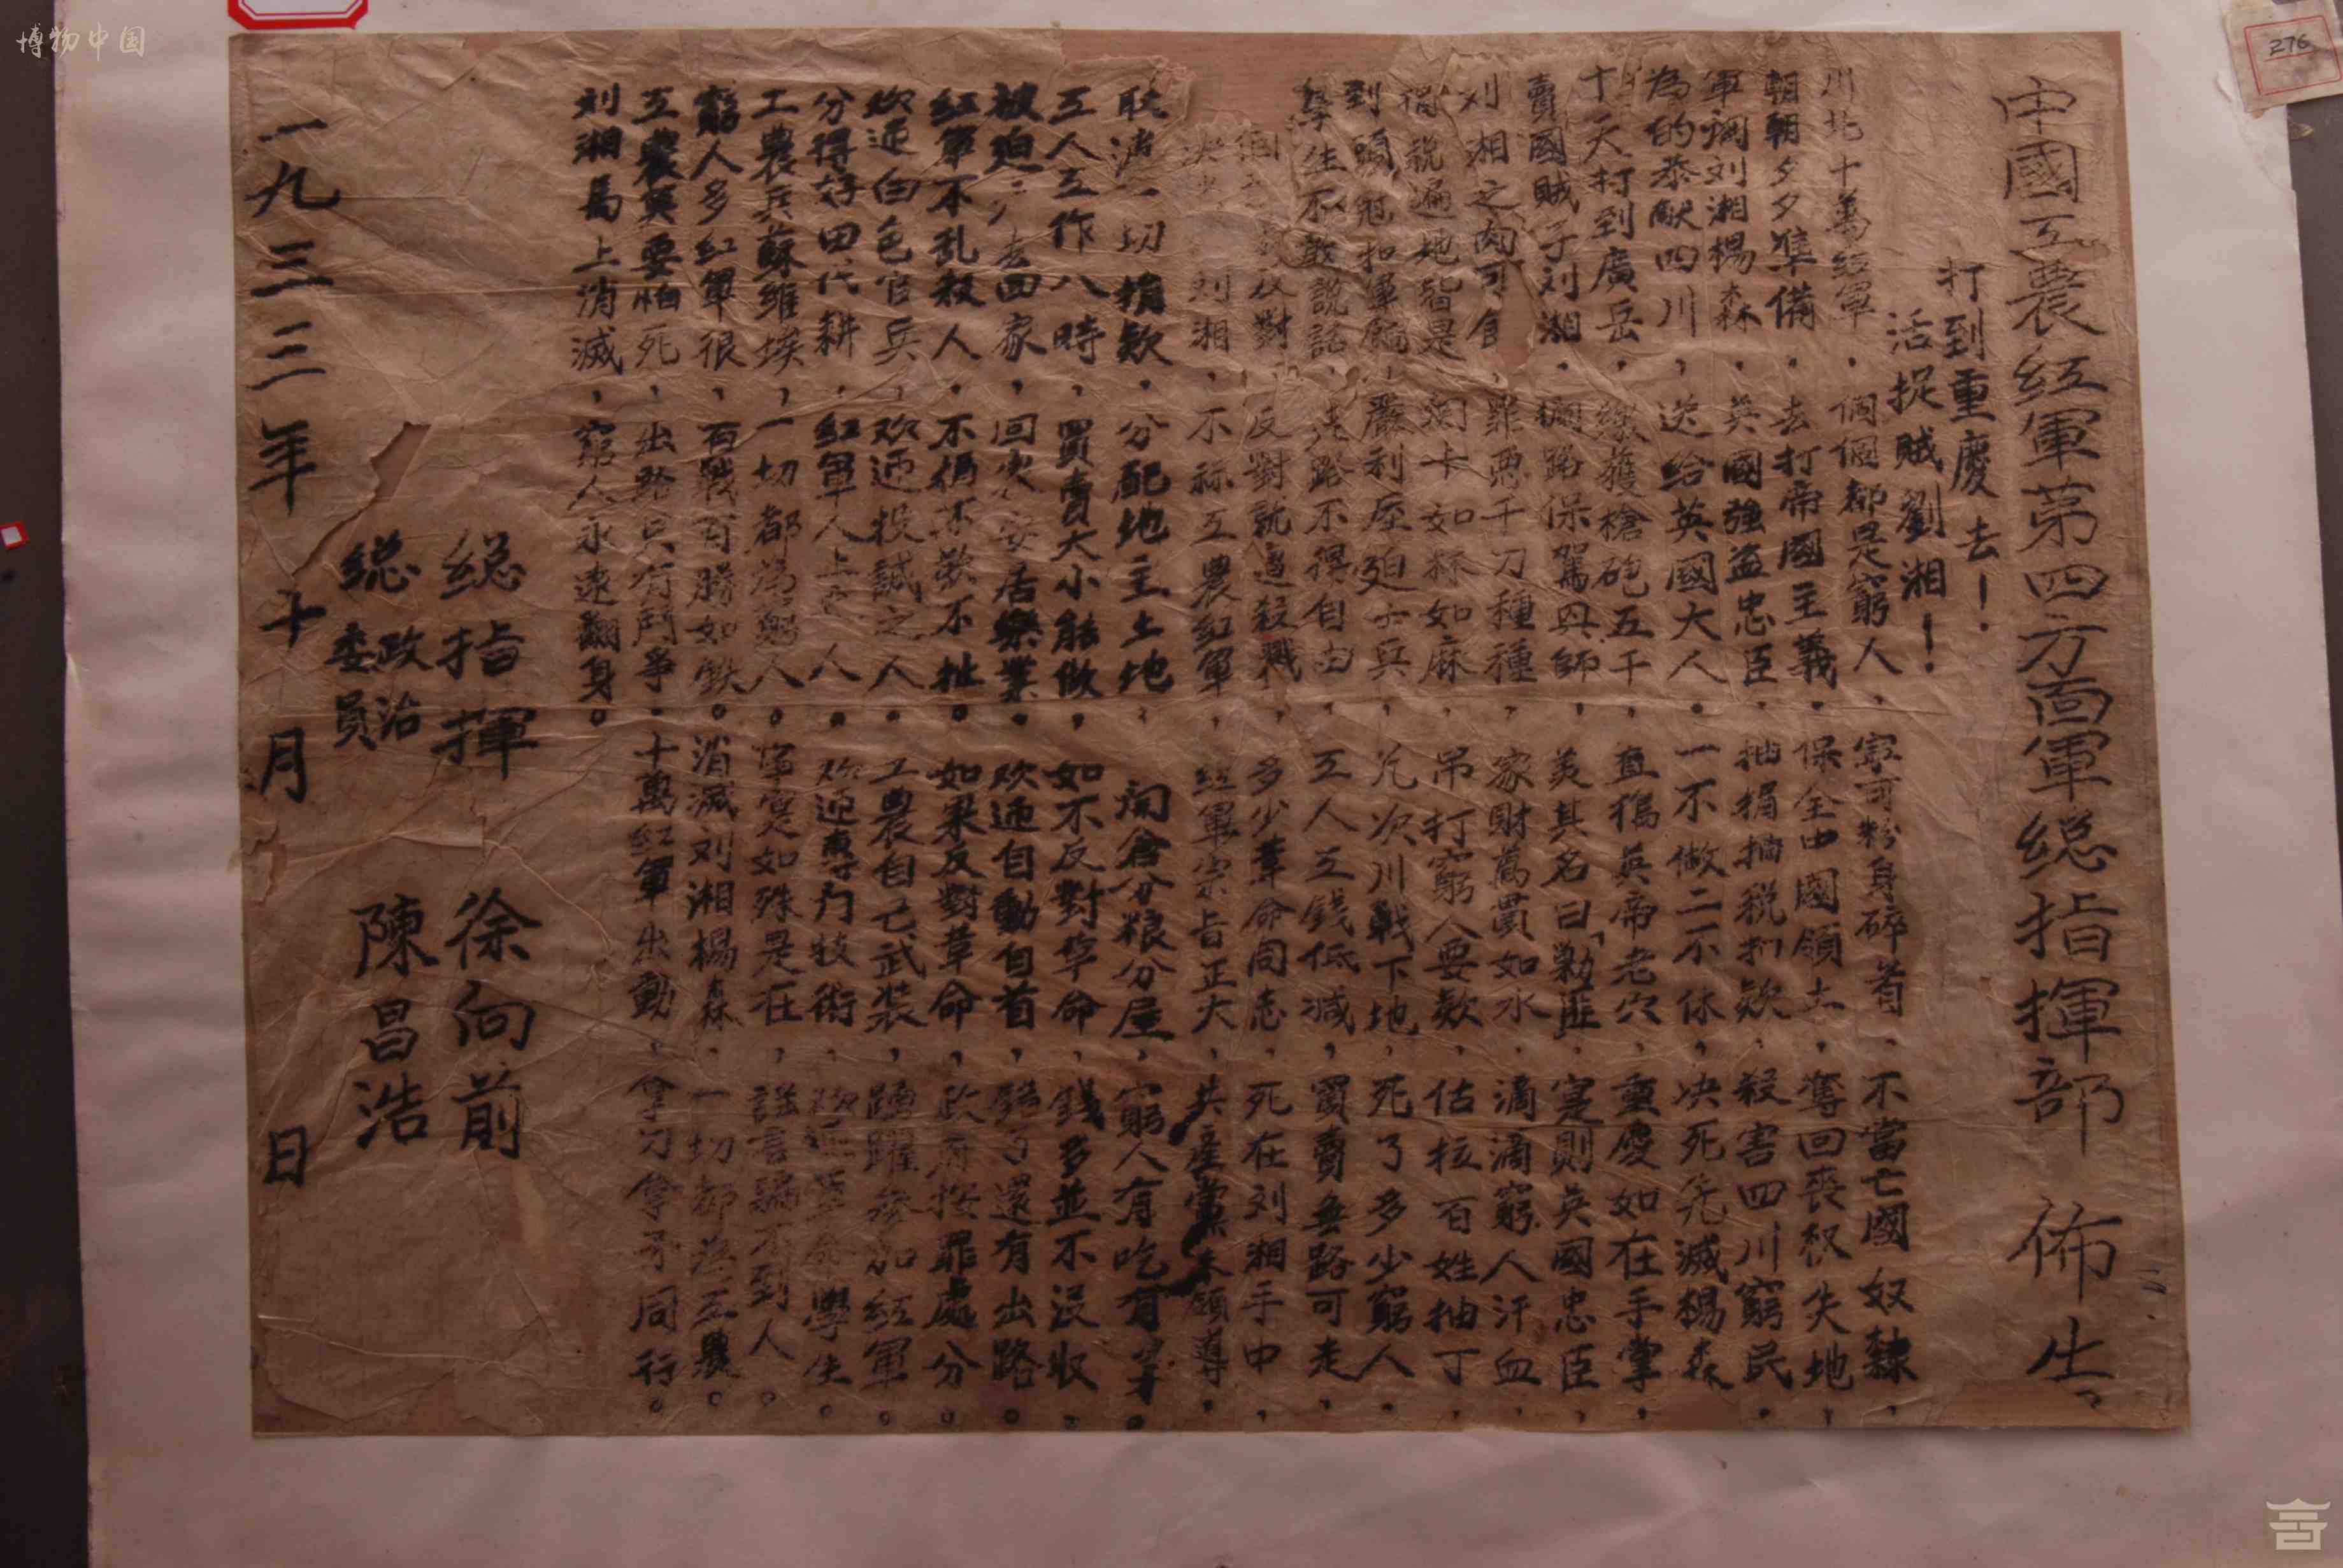 中國工農紅軍第四方面軍総指揮部 佈告
打到重慶去！
活捉賊劉湘！
川北十萬紅軍，個個都是窮人，寧可粉身碎者，不當亡國奴隸，
朝朝夕夕準備，去打帝國主義。保全中國領土，奪回喪权失地，
軍閥刘湘楊森，英國強盗忠臣，抽捐抽税扣欵，殺害四川窮民。
為的恭献四川，送给英國大人。一不做二不休，决死先滅楊森
十天打到廣岳，缴獲槍砲五千，直搗英帝老穴，重慶如在手掌，
賣國賊子刘湘，攔路保駕興師，美其名曰「勦匪，寔則英國忠臣，
刘湘之肉可食，罪惡千刀種種，家財萬貫如水，滴滴窮人汗血，
稅遍地皆是，関卡如麻，吊打窮人要欵，估拉百姓抽丁
到頭尅扣軍餉，嚴利压廹士兵，兇次川戰下地，死了多少窮人。
學生不敢說話，走路不得自由，工人工錢低减，買賣無路可走，
反對，反對就遭殺戮，多少革命同志，死在刘湘手中，
刘湘，不称工農紅軍，紅軍宗旨正大，共産黨来領導，
取消一切捐欵，分配地主土地，開倉分粮分屋，窮人有吃有穿。
工人工作八時，買賣大小能做，如不反對革命，錢多並不没收。
被廹去回家，回來安居樂業。欢迊自動自首，還有出路。
紅軍不乱殺人，不擄不欵不扯。如果反對革命，政府按罪處分。
欢迊白色官兵，欢迊投誠之人。工農自己武装，踴躍参加紅軍。
分得好田代耕，紅軍人上人。欢迊專门技術，欢迊革命學生。
工農兵蘇維埃，一切都為窮人。事寔如殊是在，謡言騙不到人。
窮人多紅軍很，百戰百勝如鉄。消滅刘湘楊森，一切都為工農。
工農莫要怕死，出路只有鬥爭。十萬紅軍出動，拿刀拿矛同行。
刘湘馬上消滅，窮人永遠翻身。
総指揮 徐向前
総政治委員 陳昌浩
一九三三年十月 日
276
博物中国